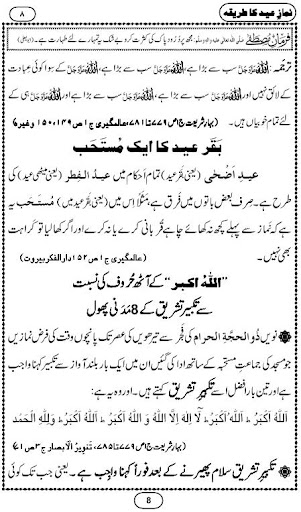 نمازِ عید کا طریقہ ۸
فرمانِ مصطَفٰے صلی اللہ تعالیٰ علیہ واٰلہ وسلم: مجھ پر دُرُودِ پاک کی کثرت کرو بے شک یہ تمہارے لئے طہارت ہے۔ (ابو یعلیٰ)
ترجَمہ: اللہ عَزَّوَجَلَّ سب سے بڑا ہے، اللہ عَزَّوَجَلَّ سب سے بڑا ہے، اللہ عَزَّوَجَلَّ کے سوا کوئی عبادت
کے لائق نہیں اور اللہ عَزَّوَجَلَّ سب سے بڑا ہے، اللہ عَزَّوَجَلَّ سب سے بڑا ہے اور اللہ عَزَّوَجَلَّ ہی کے
لئے تمام خوبیاں ہیں۔ (بہارِ شریعت ج۱ ص۷۷۹ تا ۷۸۱، عالمگیری ج۱ ص۱۴۹، ۱۵۰ وغیرہ)
بَقَر عید کا ایک مُستَحَب
عیدِ اَضْحٰی (یعنی بَقَر عید) تمام اَحکام میں عیدُ الفِطر (یعنی میٹھی عید) کی
طرح ہے۔ صِرف بعض باتوں میں فرق ہے، مَثَلًا اس میں (یعنی بَقَر عید میں) مُستَحَب یہ
ہے کہ نَماز سے پہلے کچھ نہ کھائے چاہے قربانی کرے یا نہ کرے اور اگر کھا لیا تو کراہت
بھی نہیں۔ (عالمگیری ج۱ ص۱۵۲ دارالفکر بیروت)
”اَللہُ اَکبر“ کے آٹھ حُرُوف کی نسبت
سے تکبیرِ تشریق کے 8 مَدَنی پھول
نویں ذُوالحجَّۃِ الحرام کی فَجر سے تیرھویں کی عصر تک پانچوں وقت کی فرض نَمازیں
جو مسجد کی جماعتِ مُستَحَبَّہ کے ساتھ ادا کی گئیں ان میں ایک بار بلند آواز سے تکبیر کہنا واجب ہے
اور تین بار افضل اسے تکبیرِ تشریق کہتے ہیں۔ اور وہ یہ ہے:
اَللّٰہُ اَکْبَرُ ؕ اَللّٰہُ اَکْبَرُ ؕ لَآ اِلٰہَ اِلَّا اللّٰہُ وَ اللّٰہُ اَکْبَرُ ؕ اَللّٰہُ اَکْبَرُ ؕ وَ لِلّٰہِ الْحَمْد
(بہارِ شریعت ج۱ ص۷۷۹ تا ۷۸۵، تَنوِیرُ الْاَبصار ج۳ ص۷۱)
تکبیرِ تشریق سلام پھیرنے کے بعد فوراً کہنا واجِب ہے۔ یعنی جب تک کوئی
8